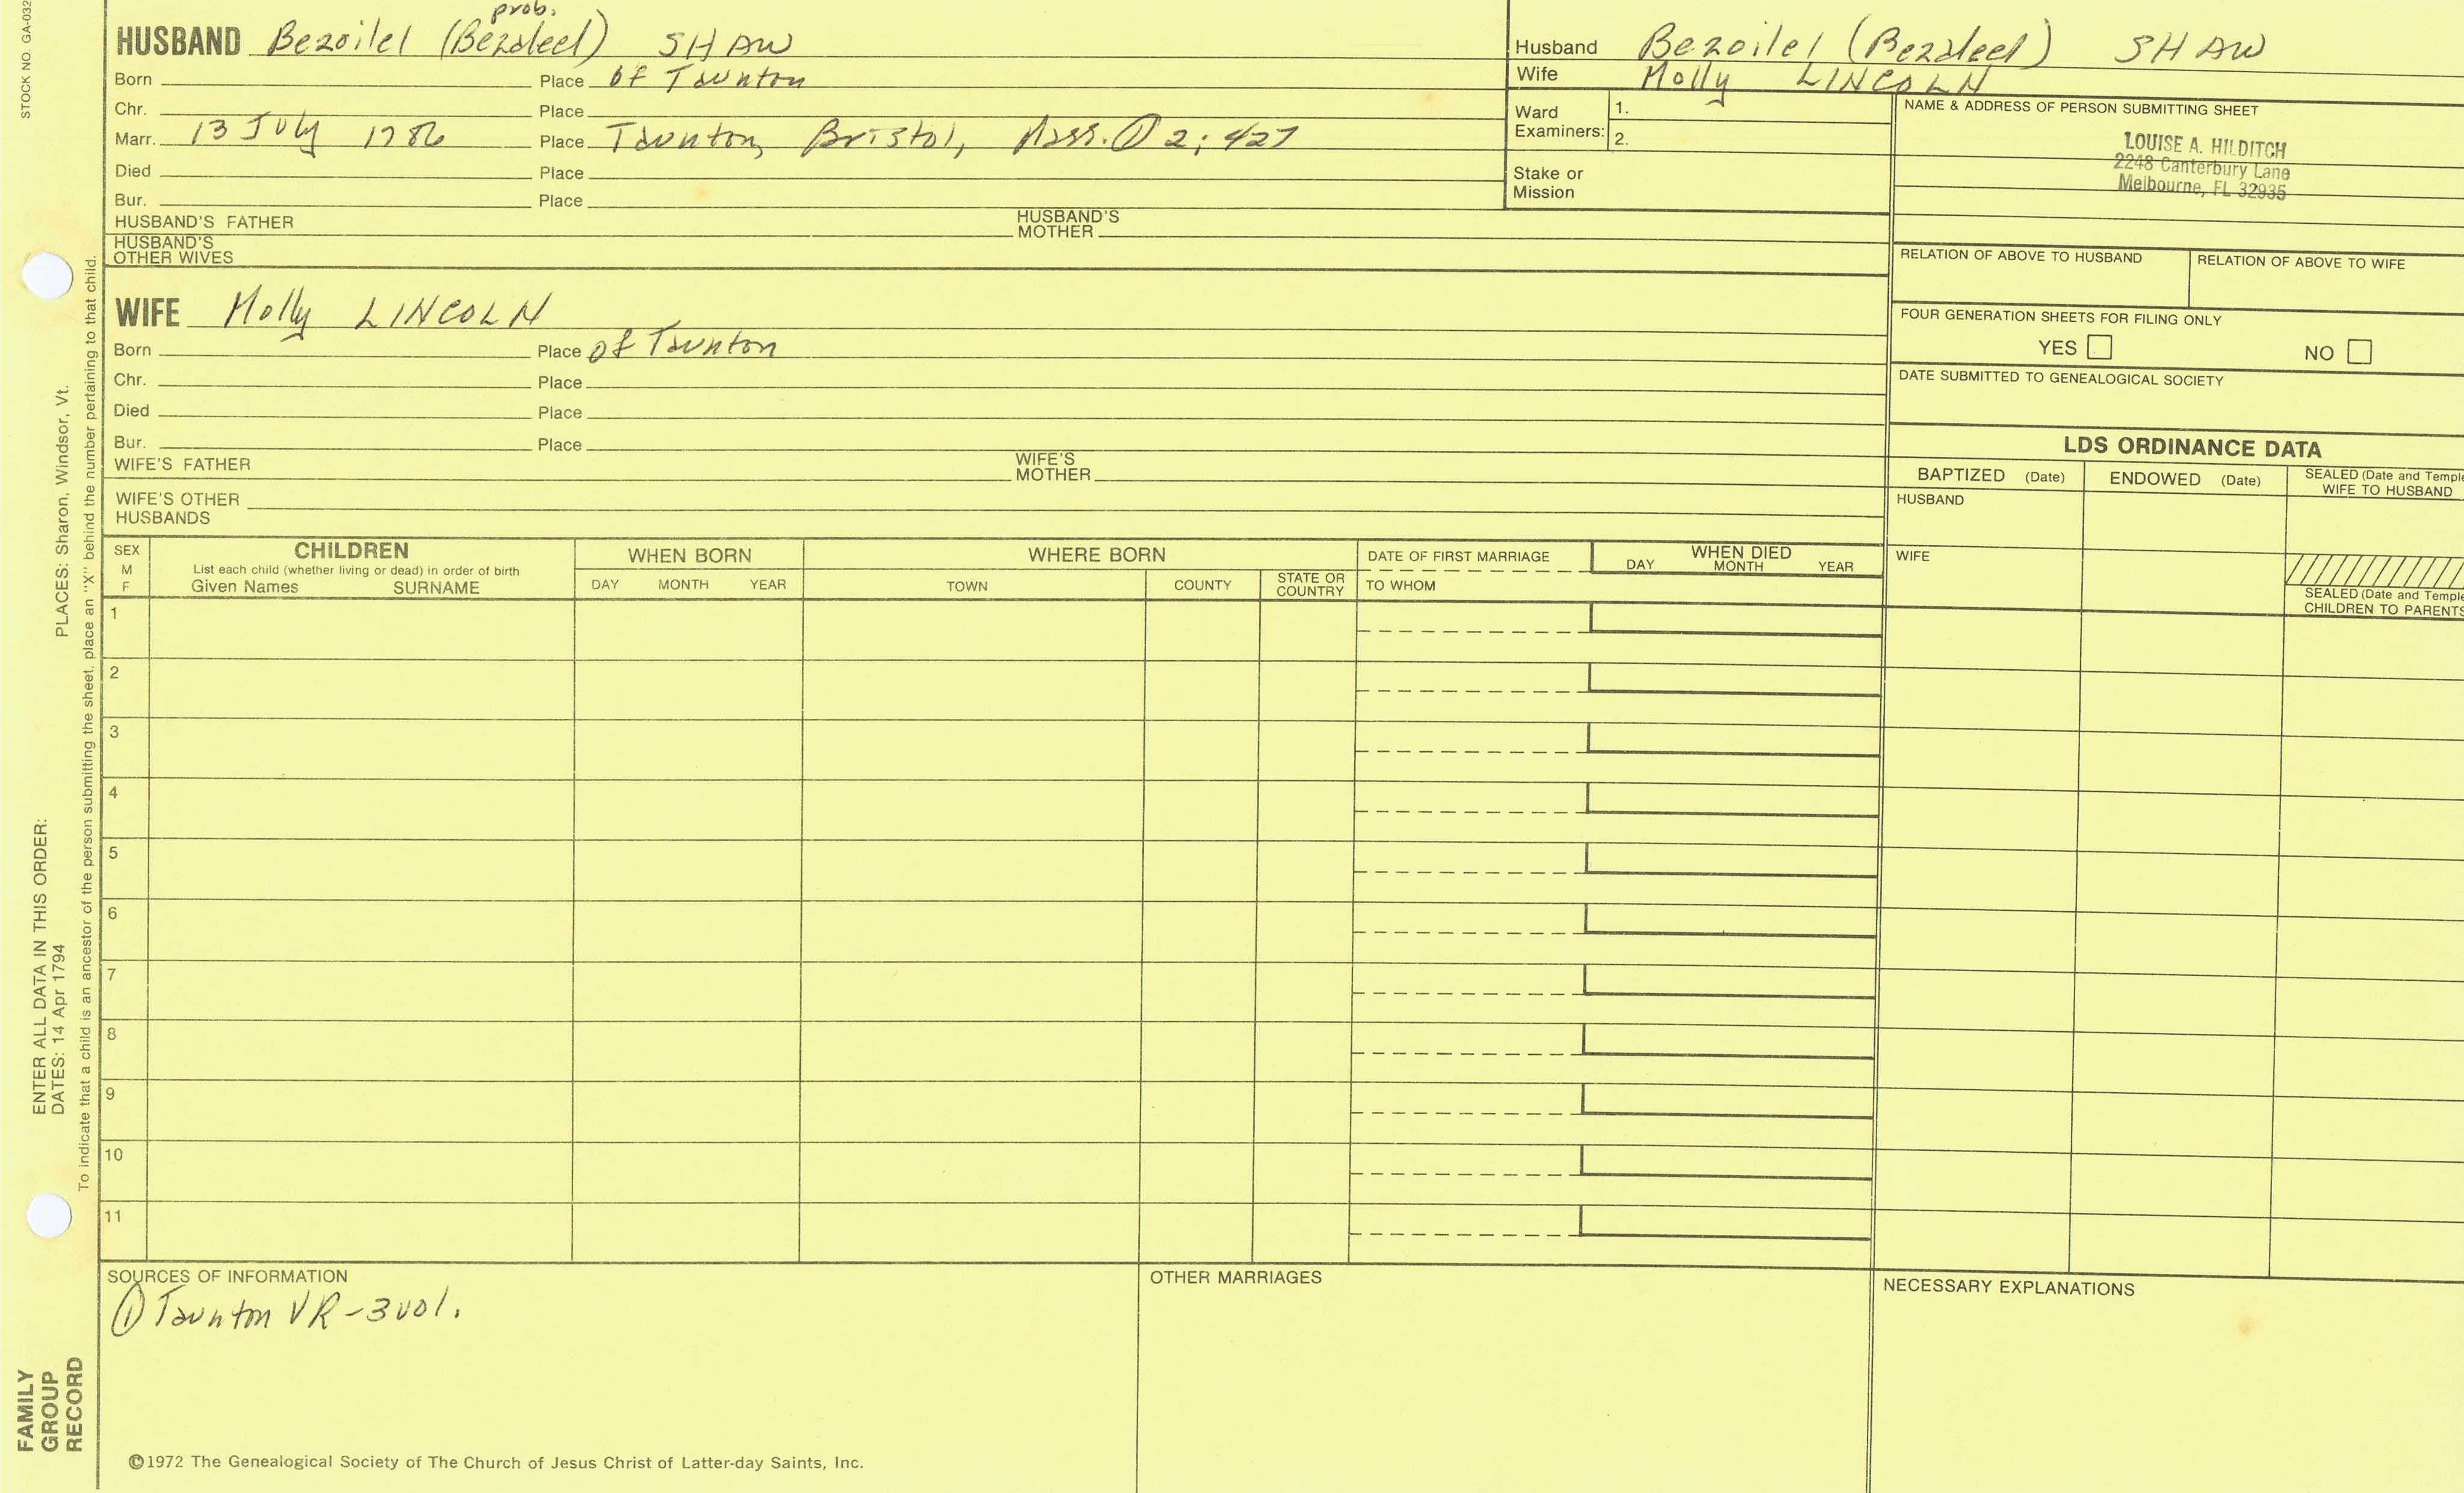 STOCK NO. GA-032
prob.
HUSBAND Bezoilel (Bezaleel) SHAW
Born Place of Taunton
Chr. Place
Marr. 13 July 1786 Place Taunton, Bristol, Mass. ① 2:427
Died Place
Bur. Place
HUSBAND'S FATHER HUSBAND'S MOTHER
HUSBAND'S OTHER WIVES
WIFE Molly LINCOLN
Born Place of Taunton
Chr. Place
Died Place
Bur. Place
WIFE'S FATHER WIFE'S MOTHER
WIFE'S OTHER HUSBANDS
Husband Bezoilel (Bezaleel) SHAW
Wife Molly LINCOLN
Ward Examiners: 1.
2.
Stake or Mission
NAME & ADDRESS OF PERSON SUBMITTING SHEET
LOUISE A. HILDITCH
2248 Canterbury Lane
Melbourne, FL 32935
RELATION OF ABOVE TO HUSBAND RELATION OF ABOVE TO WIFE
FOUR GENERATION SHEETS FOR FILING ONLY
YES NO
DATE SUBMITTED TO GENEALOGICAL SOCIETY
LDS ORDINANCE DATA
BAPTIZED (Date) ENDOWED (Date) SEALED (Date and Temple
WIFE TO HUSBAND
HUSBAND
WIFE
SEALED (Date and Temple
CHILDREN TO PARENTS
SEX
M
F
CHILDREN
List each child (whether living or dead) in order of birth
Given Names SURNAME
WHEN BORN
DAY MONTH YEAR
WHERE BORN
TOWN COUNTY STATE OR COUNTRY
DATE OF FIRST MARRIAGE
TO WHOM
WHEN DIED
DAY MONTH YEAR
1
2
3
4
5
6
7
8
9
10
11
SOURCES OF INFORMATION
① Taunton VR - 3 vol.
OTHER MARRIAGES
NECESSARY EXPLANATIONS
©1972 The Genealogical Society of The Church of Jesus Christ of Latter-day Saints, Inc.
FAMILY
GROUP
RECORD
ENTER ALL DATA IN THIS ORDER:
DATES: 14 Apr 1794 PLACES: Sharon, Windsor, Vt.
To indicate that a child is an ancestor of the person submitting the sheet, place an "X" behind the number pertaining to that child.